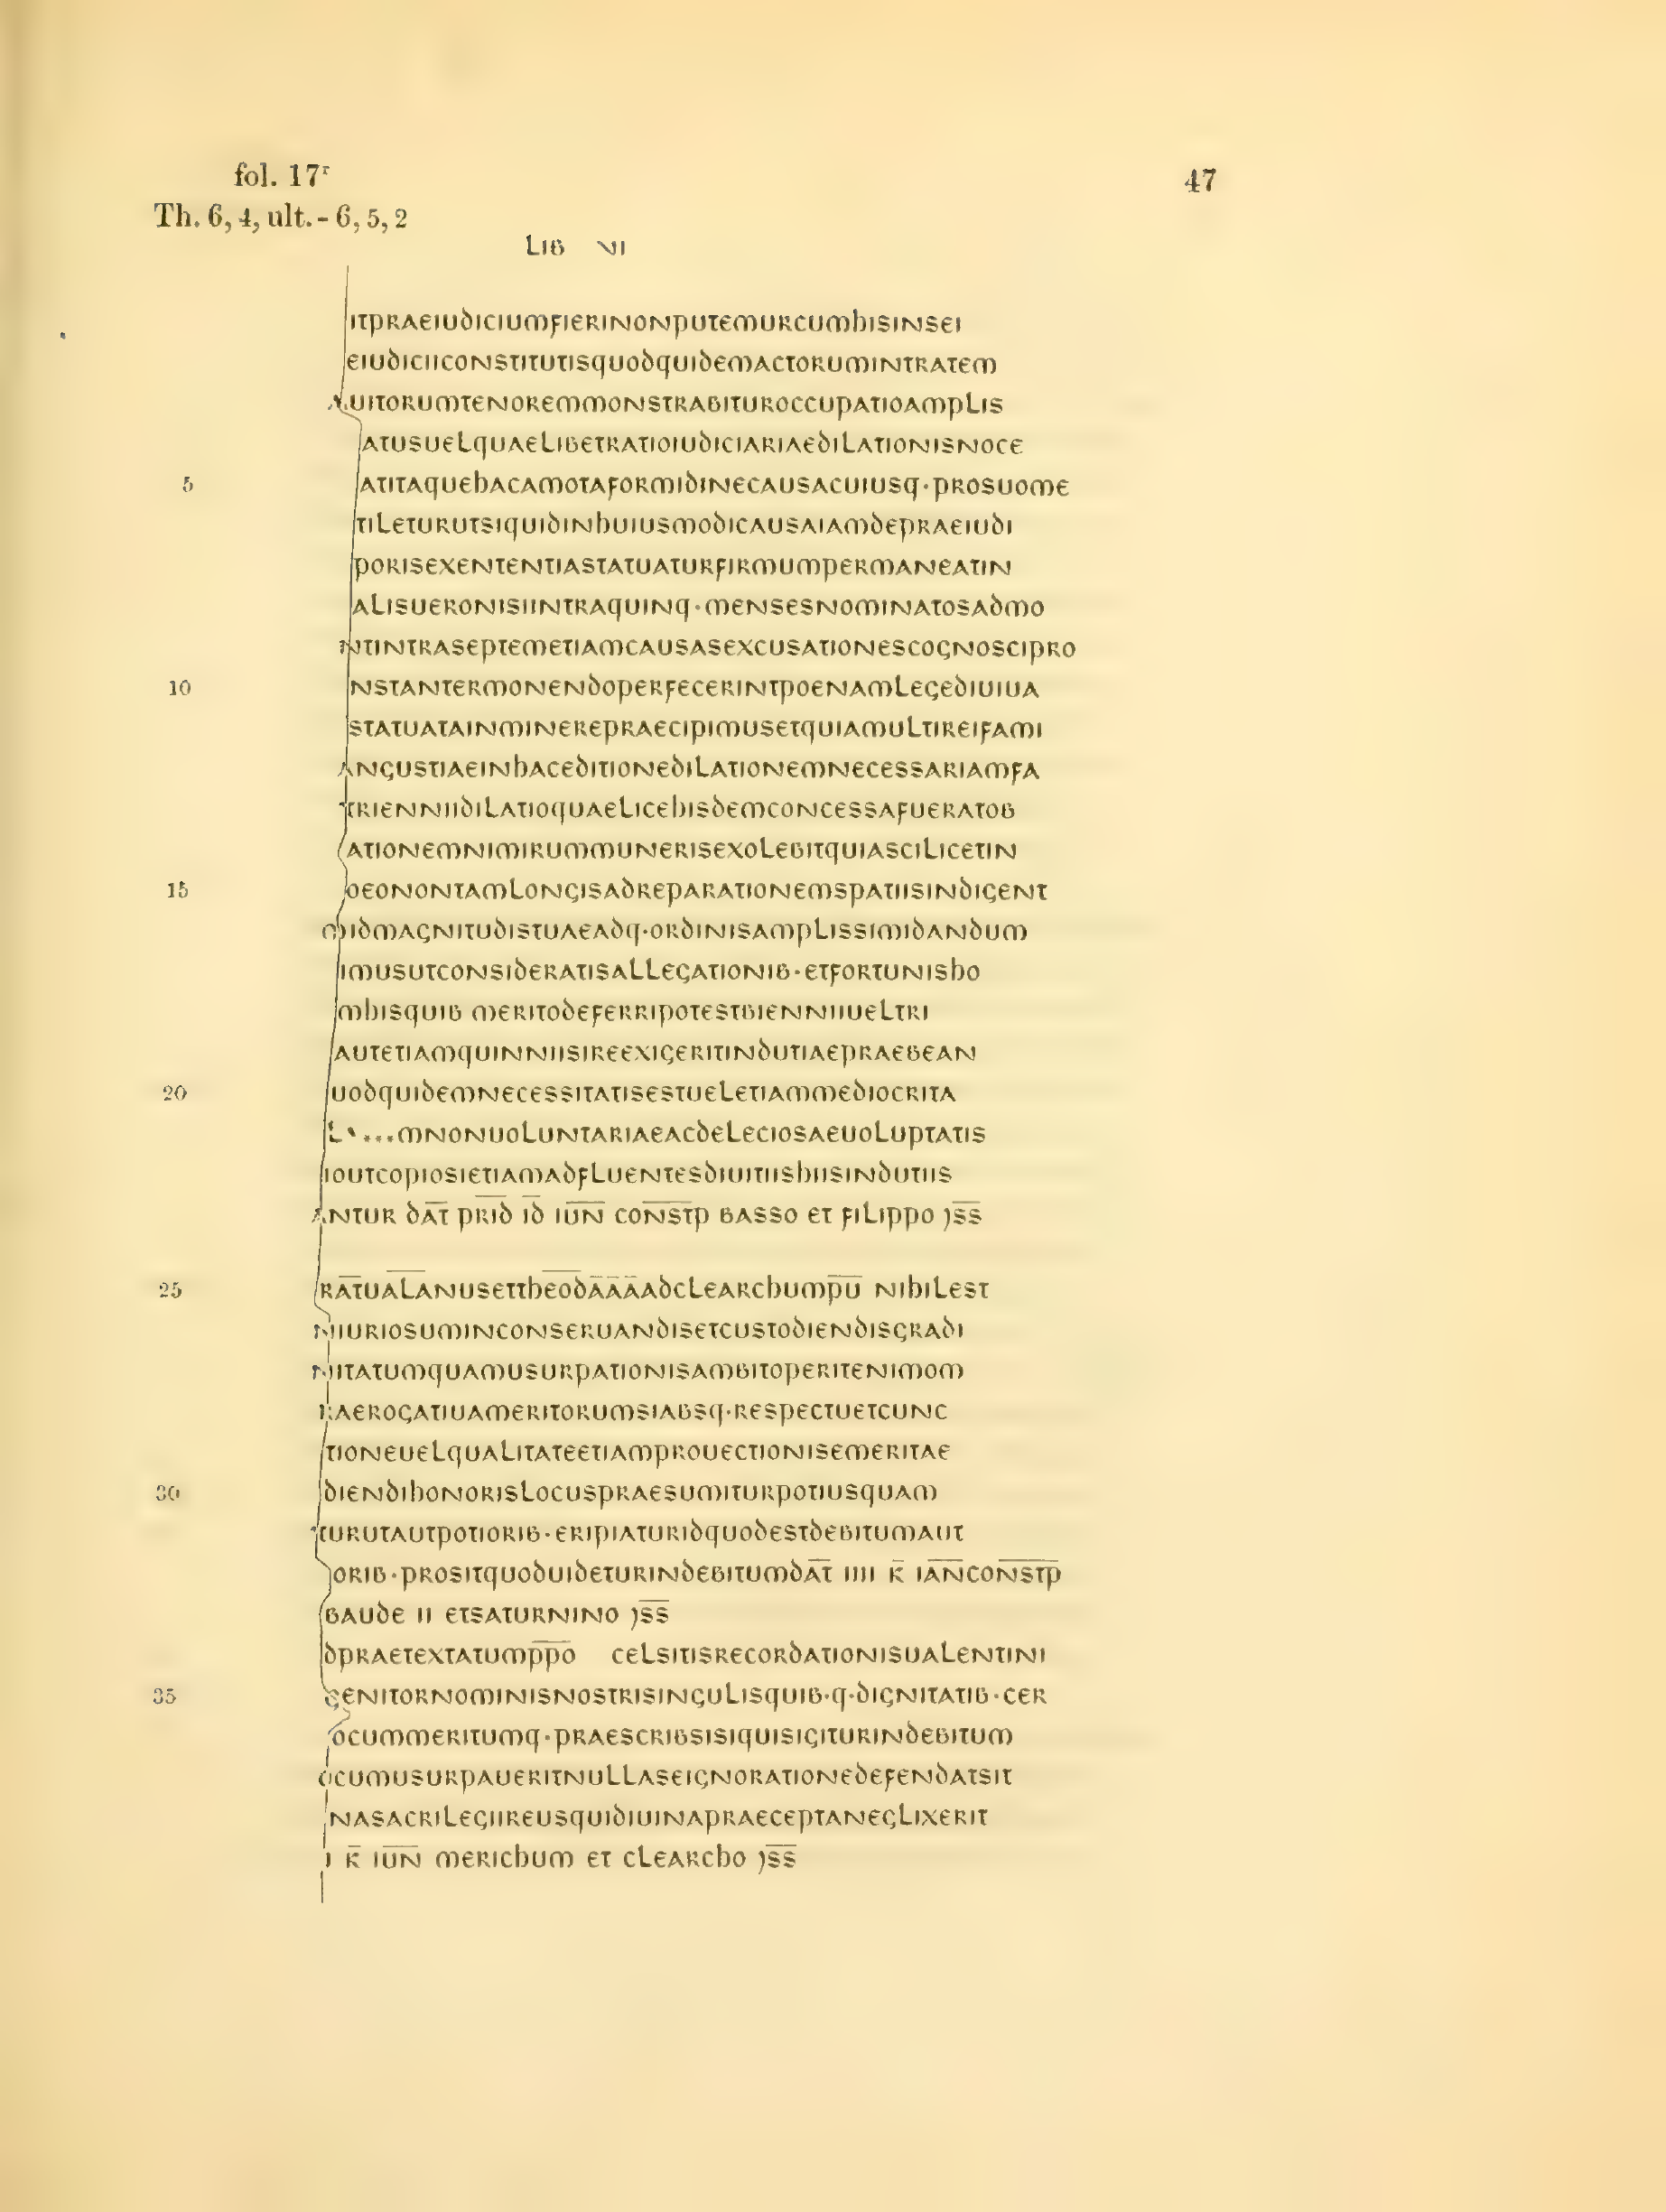 fol. 17r
47
Th. 6, 4, ult. - 6, 5, 2
LIB VI
ITPRAEIUDICIUMFIERINONPUTEMURCUMHISINSEI
EIUDICIICONSTITUTISQUODQUIDEMACTORUMINTRATEM
AUITORUMTENOREMMONSTRABITUROCCUPATIOAMPLIS
ATUSUELQUAELIBETRATIOIUDICIARIAEDILATIONISNOCE
5 ATITAQUEHACAMOTAFORMIDINECAUSACUIUSQ·PROSUOME
TILETURUTSIQUIDINHUIUSMODICAUSAIAMDEPRAEIUDI
PORISEXENTENTIASTATUATURFIRMUMPERMANEATIN
ALISUERONISIINTRAQUINQ·MENSESNOMINATOSADMO
NTINTRASEPTEMETIAMCAUSASEXCUSATIONESCOGNOSCIPRO
10 NSTANTERMONENDOPERFECERINTPOENAMLEGEDIUIUA
STATUATAINMINEREPRAECIPIMUSETQUIAMULTIREIFAMI
ANGUSTIAEINHACEDITIONEDILATIONEMNECESSARIAMFA
TRIENNIIDILATIOQUAELICEHISDEMCONCESSAFUERATOB
ATIONEMNIMIRUMMUNERISEXOLEBITQUIASCILICETIN
15 OEONONTAMLONGISADREPARATIONEMSPATIISINDIGENT
OIDMAGNITUDISTUAEADQ·ORDINISAMPLISSIMIDANDUM
IMUSUTCONSIDERATISALLEGATIONIB·ETFORTUNISHO
MHISQUIB MERITODEFERRIPOTESTBIENNIIUELTRI
AUTETIAMQUINNIISIREEXIGERITINDUTIAEPRAEBEAN
20 UODQUIDEMNECESSITATISESTUELETIAMMEDIOCRITA
L....MNONUOLUNTARIAEACDELECIOSAEUOLUPTATIS
IOUTCOPIOSIETIAMADFLUENTESDIUITIISHIISINDUTIIS
ANTUR DA̅T̅ PR̅I̅D̅ I̅D̅ I̅U̅N̅ CO̅N̅S̅T̅P BASSO ET FILIPPO )S̅S̅
25 RA̅T̅UA̅L̅A̅NUSETTHE̅O̅D̅A̅A̅A̅ADCLEARCHUMP̅U̅ NIHILEST
NIURIOSUMINCONSERUANDISETCUSTODIENDISGRADI
NITATUMQUAMUSURPATIONISAMBITOPERITENIMOM
RAEROGATIUAMERITORUMSIABSQ·RESPECTUETCUNC
TIONEUELQUALITATEETIAMPROUECTIONISEMERITAE
30 DIENDIHONORISLOCUSPRAESUMITURPOTIUSQUAM
TURUTAUTPOTIORIB·ERIPIATURIDQUODESTDEBITUMAUT
ORIB·PROSITQUODUIDETURINDEBITUMDA̅T̅ IIII K̅ I̅A̅N̅CO̅N̅S̅T̅P̅
BAUDE II ETSATURNINO )S̅S̅
DPRAETEXTATUMP̅P̅O̅ CELSITISRECORDATIONISUALENTINI
35 GENITORNOMINISNOSTRISINGULISQUIB·Q·DIGNITATIB·CER
OCUMMERITUMQ·PRAESCRIBSISIQUISIGITURINDEBITUM
OCUMUSURPAUERITNULLASEIGNORATIONEDEFENDATSIT
NASACRILEGIIREUSQUIDIUINAPRAECEPTANEGLIXERIT
I K̅ I̅U̅N̅ MERICHUM ET CLEARCHO )S̅S̅